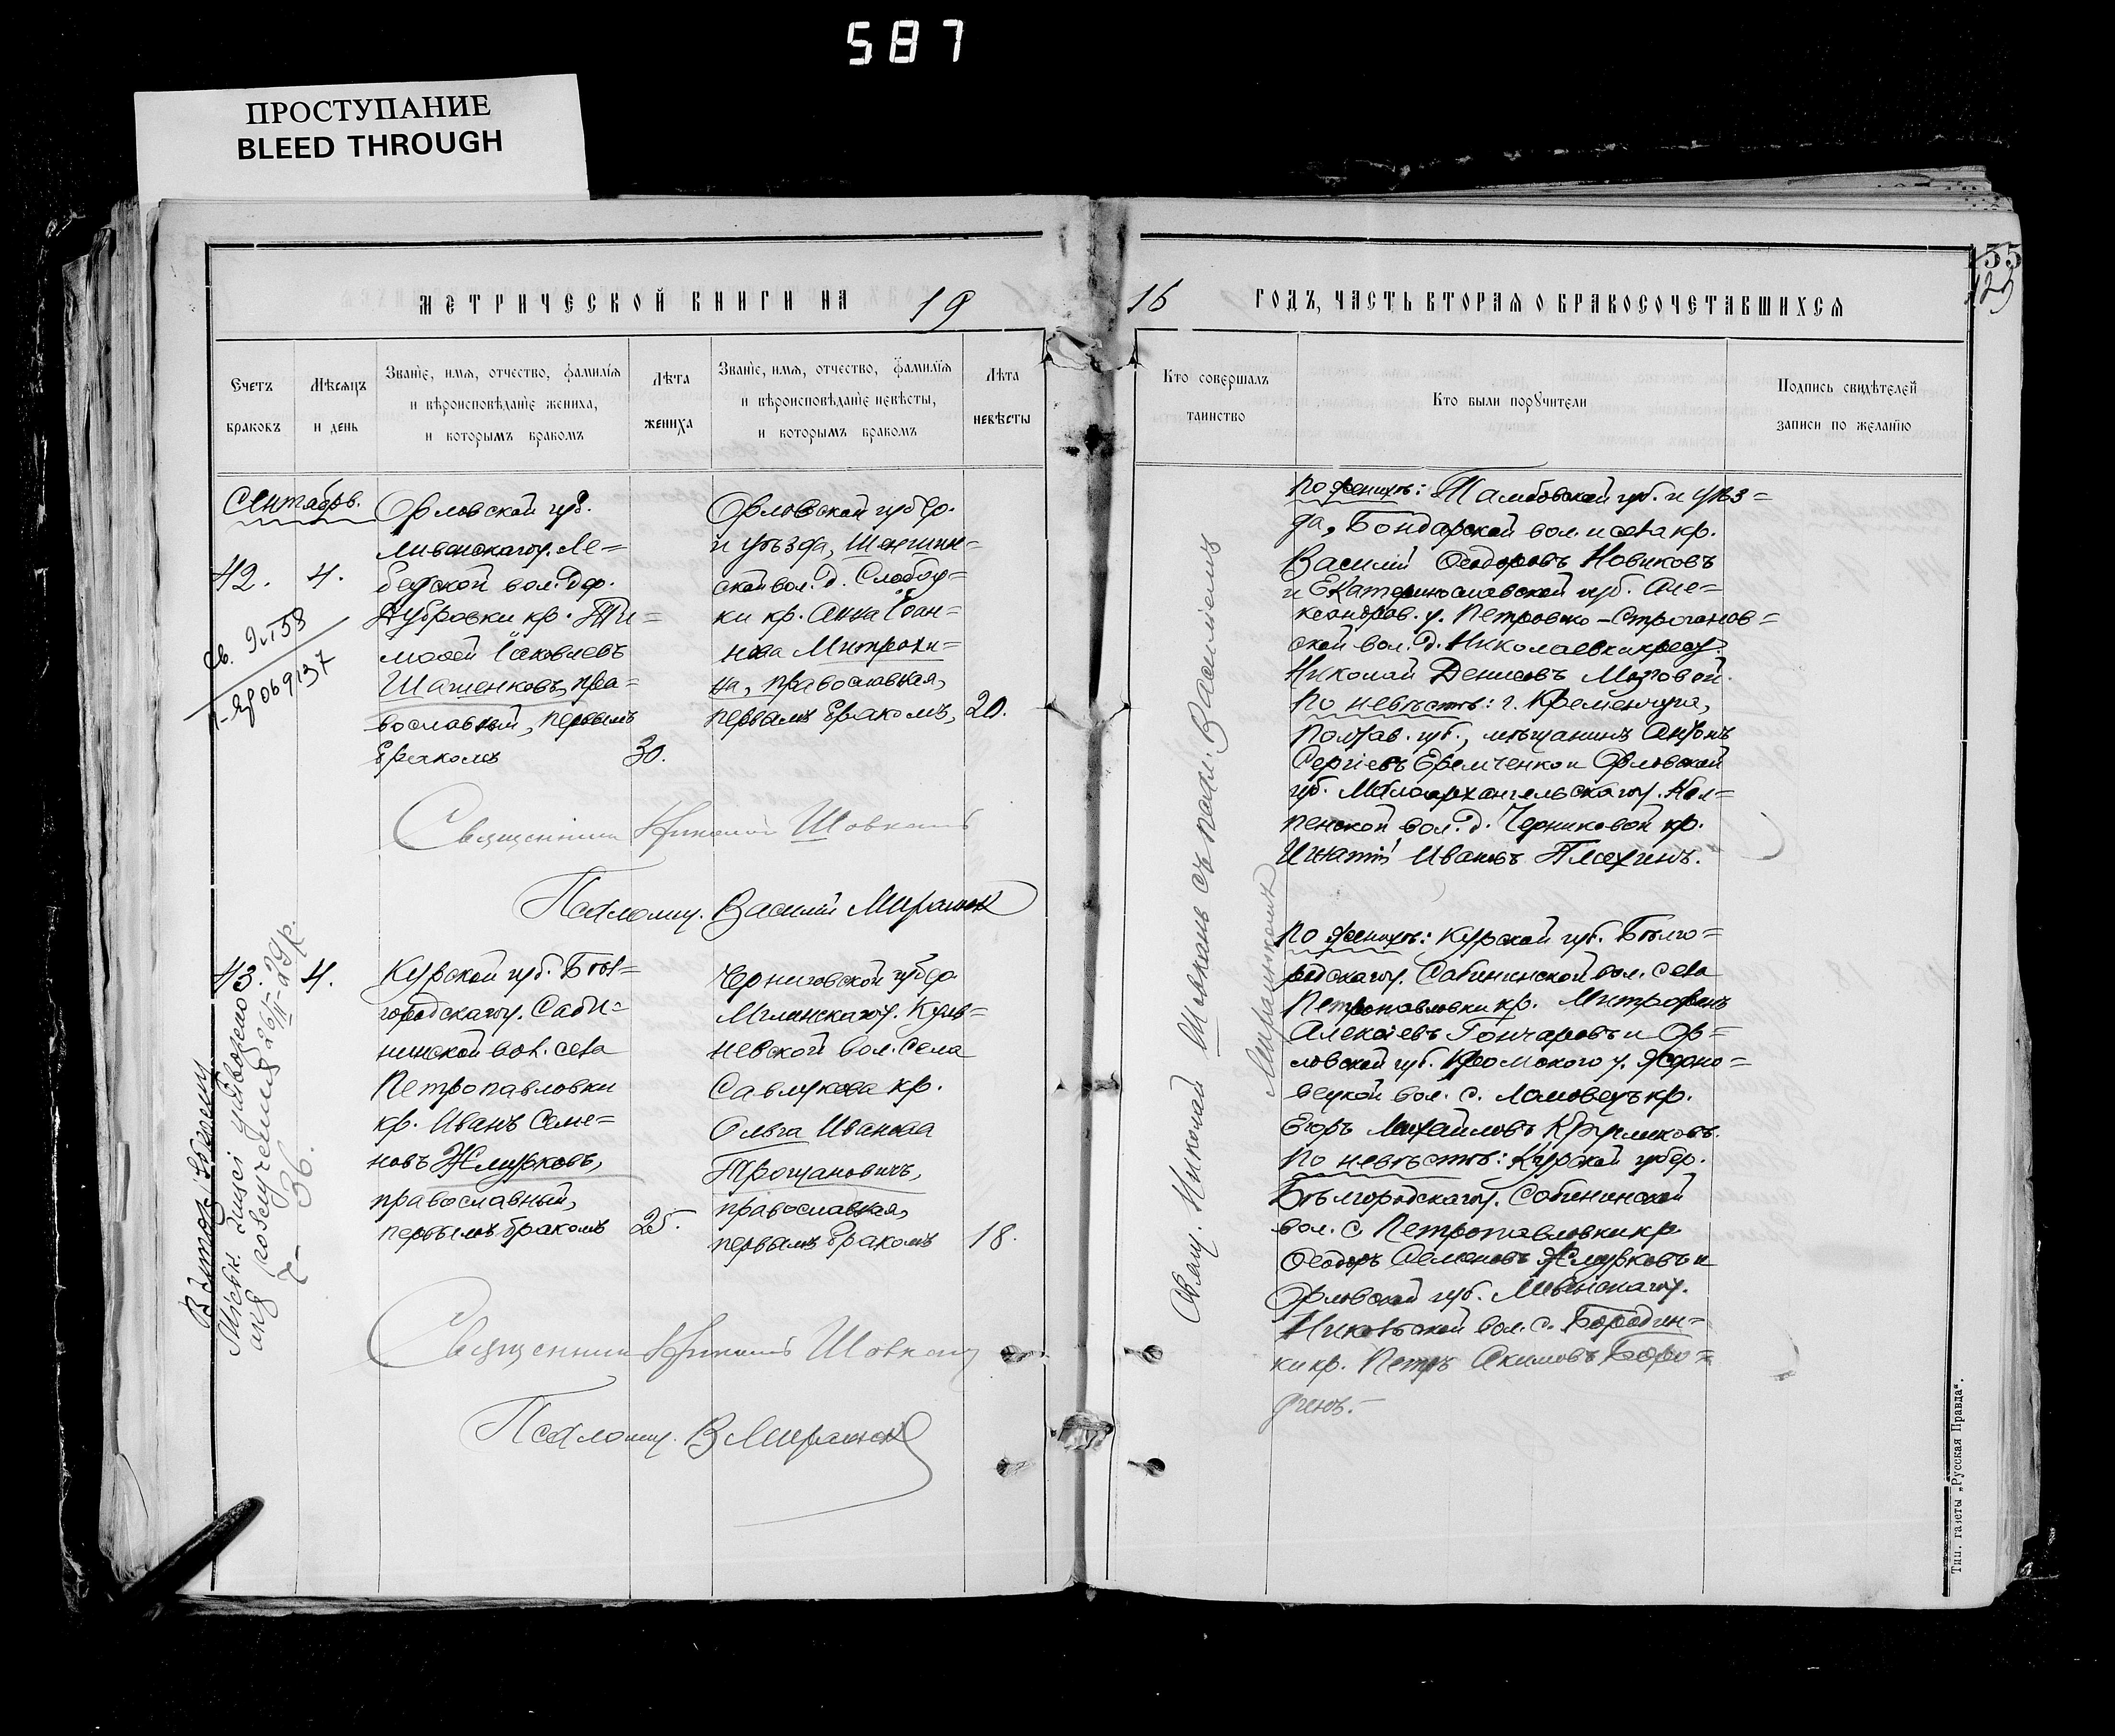 587
ПРОСТУПАНИЕ
BLEED THROUGH
55
129
МЕТРИЧЕСКОЙ КНИГИ НА 19
16 ГОДЪ, ЧАСТЬ ВТОРАЯ О БРАКОСОЧЕТАВШИХСЯ
Счетъ
браковъ
Мѣсяцъ
и день
Званіе, имя, отчество, фамилія
и вѣроисповѣданіе жениха,
и которымъ бракомъ
Лѣта
жениха
Званіе, имя, отчество, фамилія
и вѣроисповѣданіе невѣсты,
и которымъ бракомъ
Лѣта
невѣсты
Кто совершалъ
таинство
Кто были поручители
Подпись свидѣтелей
записи по желанію
Сентябрь.
42. 4.
Орловской губ.
Ливенскаго у. Ле=
бедской вол. дер.
Дубровки кр. Ти=
моѳей Іаковлевъ
Шашенковъ, пра=
вославный, первымъ
бракомъ
30.
Орловской губер.
и уѣзда,
ской вол. д. Слобод=
ки кр. Анна Іоан=
нова Митрохи=
на, православная,
первымъ бракомъ,
20.
По женихѣ: Тамбовской губ. и уѣз=
да, Бондарской вол. и села кр.
Василій Ѳеодоровъ Новиковъ
и Екатеринославской губ. Але=
ксандров. у. Петровско-Строганов=
ской вол. д. Николаевки
Николай Денисовъ Мозговой.
По невѣстѣ: г. Кременчуга,
Полтав. губ., мѣщанинъ Антонъ
Сергіевъ Еремченко и Орловской
губ. Малоархангельскаго у.
пенской вол. д. Черниковой кр.
Игнатій Ивановъ Плахинъ.
Священникъ Николай Шовкань
Псаломщ. Василій Мирашок
43. 4.
Курской губ. Бѣл=
городскаго у. Саби=
нинской вол. села
Петропавловки
кр. Иванъ Семе=
новъ Жмурковъ,
православный,
первымъ бракомъ
25.
Черниговской губер.
Мглинскаго у.
невской вол. села
Савлукова кр.
Ольга Иванова
Трощановичъ,
православная,
первымъ бракомъ
18.
По женихѣ: Курской губ. Бѣлго=
родскаго у. Сабининской вол. села
Петропавловки кр. Митрофанъ
Алексѣевъ Гончаровъ и Ор=
ловской губ. Кромского у.
вецкой вол. с. Ломовецъ кр.
Егоръ Михайловъ
По невѣстѣ: Курской губер.
Бѣлгородскаго у. Сабининской
вол. с. Петропавловки кр.
Ѳеодоръ Семеновъ Жмурковъ и
Орловской губ. Ливенскаго у.
Никольской вол. с. Бородин=
ки кр. Петръ Акимовъ Боро=
динъ.-
Священникъ Николай Шовкань
Псаломщ. В Мирашок
Свящ. Николай Шовкань съ псал. Василіемъ
Тип. газеты „Русская Правда“.